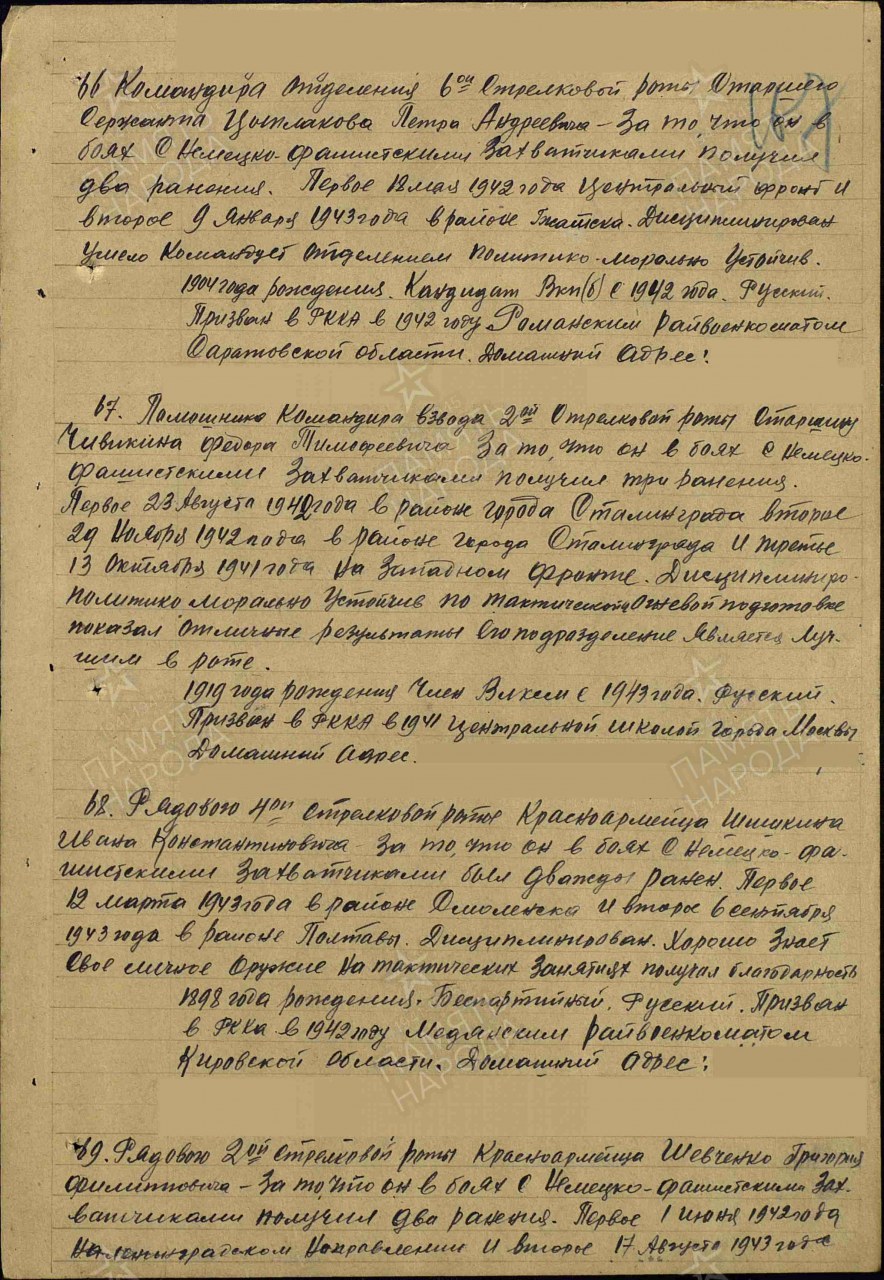 66 Командира отделения 6ой Стрелковой роты Старшего
Сержанта Цыплакова Петра Андреевича – За то, что он в
боях с Немецко-фашистскими Захватчиками получил
два ранения. Первое 18 мая 1942 года Центральный фронт и
второе 9 Января 1943 года в районе Гжатска. Дисциплинирован
Умело Командует отделением политико-морально Устойчив.
1904 года рождения. Кандидат Вкп(б) с 1942 года. Русский.
Призван в РККА в 1942 году Романским райвоенкоматом
Саратовской области. Домашний Адрес:
67. Помошника Командира взвода 2ой Стрелковой роты Старшину
Чивикина Федора Тимофеевича За то, что он в боях с Немецко-
фашистскими Захватчиками получил три ранения.
Первое 23 Августа 1942 года в районе города Сталинграда второе
29 Ноября 1942 года в районе города Сталинграда и третье
13 Октября 1941 года на Западном Фронте. Дисциплиниро-
политико морально Устойчив по тактической и Огневой подготовке
показал отличные результаты Его подразделение Является Луч-
шим в роте.
1919 года рождения Член Влксм с 1943 года. Русский.
Призван в РККА в 1941 Центральной школой города Москвы
Домашний Адрес.
68. Рядового 4ой стрелковой роты Красноармейца Шишкина
Ивана Константиновича – За то, что он в боях с Немецко-фа-
шистскими Захватчиками был дважды ранен. Первое
12 марта 1943 года в районе Смоленска и второе 6 сентября
1943 года в районе Полтавы. Дисциплинирован. Хорошо Знает
Свое личное Оружие На тактических Занятиях получал благодарность
1898 года рождения. Беспартийный. Русский. Призван
в РККА в 1942 году Медянским райвоенкоматом
Кировской области. Домашний Адрес:
69. Рядового 2ой стрелковой роты Красноармейца Шевченко Григория
Филипповича – За то, что он в боях с Немецко-фашистскими Зах-
ватчиками получил два ранения. Первое 1 июня 1942 года
На ленинградском Направлении и второе 17 Августа 1943 года